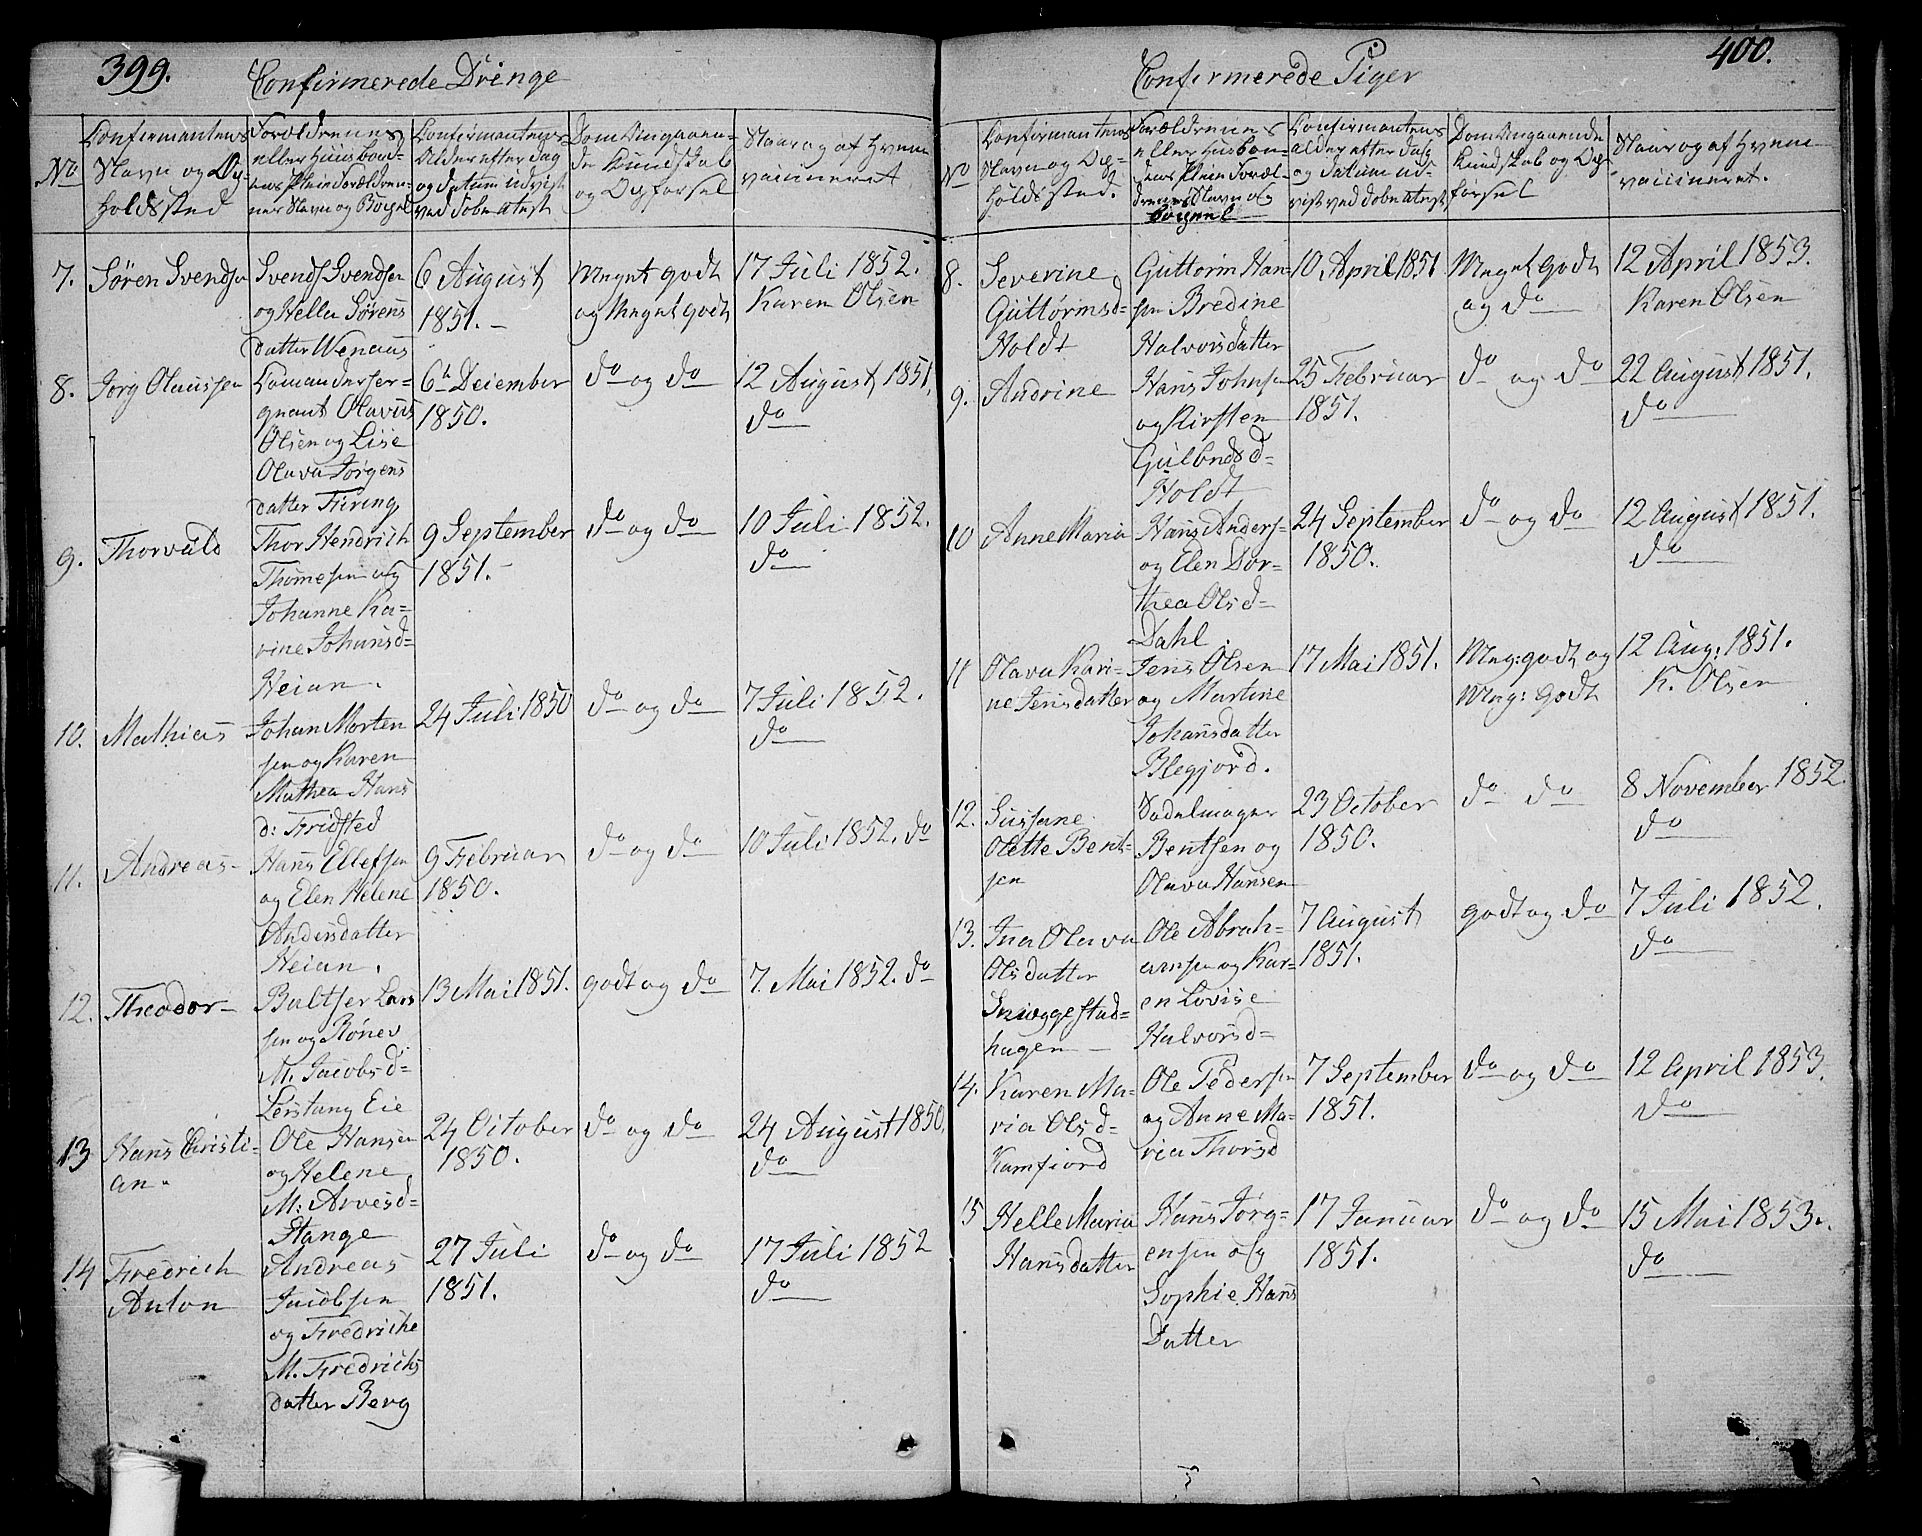 399.
Confirmerede Drenge
No
Confirmantens
Navn og Op-
holdssted
Forældrenes
eller Huusbond-
ens Pleieforældre-
nes Navn og Bopæl
Confirmantens
Alder efter Dag
og datum udvist
ved Døbeatest
Dom Angaaen-
de Kundskab
og Opførsel
Naar og af Hvem
vaccineret
7.
Søren Svendsen
Svend Svendsen
og Helle Sørens
datter Wenaas
6 August
1851. –
Meget godt
og Meget godt
17 Juli 1852.
Karen Olsen
8.
Jørg Olaussen
Comanderser-
gnant Olavus
Olsen og Lise
Olava Jørgens
datter Firing
6h December
1850.
do og do
12 August 1851.
do
9.
Thorvald
Thor Hendrich
Thomesen og
Johanne Ka-
rine Johansd-
Heian.
9 September
1851. –
do og do
10 Juli 1852.
do
10.
Mathias
Johan Morten
sen og Karen
Mathea Hans
d: Fridsted
24 Juli 1850
do og do
7 Juli 1852.
do
11.
Andreas –
Hans Ellefsen
og Elen Helene
Andersdatter
Heian.
9 Februar
1850.
do og do
10 Juli 1852. do
12.
Theodor –
Baltser Lars
sen og
M. Jacobsd-
Lerstang Eie
13 Mai 1851.
godt og do
7. Mai 1852. do
13
Hans Christi-
an.
Ole Hansen
og Helene
M: Arvesd-
Stange
24 October
1850.
do og do
24 August 1850.
do
14
Fredrich
Anton
Andreas
Jacobsen
og Fredriche
M. Fredrichs
datter Berg
27 Juli
1851.
do og do
17 Juli 1852
do
400.
Confirmerede Piger
No
Confirmantens
Navn og Op-
holdssted.
Forældrenes
eller Husbon-
dens Pleieforæl-
drenes Navn og
Bopæl
Confirmantens
alder efter dag
og datum ud-
vist ved døbeatest
Dom Angaaende
Kundskab og Op-
førsel
Naar og af Hvem
vaccineret.
8.
Severine
Guttormsd-
Holdt
Guttorm Han
sen Bredine
Halvorsdatter
10 April 1851
Meget Godt
og do
12 April 1853.
Karen Olsen
9.
Andrine
Hans Johnsen
og Kirsten
Gulbrdsd-
Holdt
25 Februar
1851.
do og do
22 August 1851.
do
10
Anne Maria
Hans Anders-
og Elen Dor-
thea Olsd-
Dahl
24 September
1850.
do og do
12 August 1851.
do
11
Olava Kari-
ne Jensdatter
Jens Olsen
og Martine
Johansdatter
Blegjord.
17 Mai 1851.
Meg: godt og
Meg: Godt
12 Aug: 1851.
K. Olsen
12.
Sussane
Olette Bent-
sen
Sadelmager
Bentsen og
Olava Hansen
23 October
1850.
do do
8 November 1852.
do
13.
Ina Olava
Olsdatter
Sniggestad-
hagen –
Ole Abrah-
amsen og Kar-
en Lovise
Halvorsd-
7 August
1851.
godt og do
7 Juli 1852.
do
14.
Karen Ma-
ria Olsd-
Kamfiord
Ole Pedersen
og Anne Ma-
ria Thorsd
7 September
1851.
do og do
12 April 1853.
do
15
Helle Maria
Hansdatter
Hans Jørg-
ensen og
Sophie Hans
Datter
17 Januar
1851.
do og do
15 Mai 1853.
do